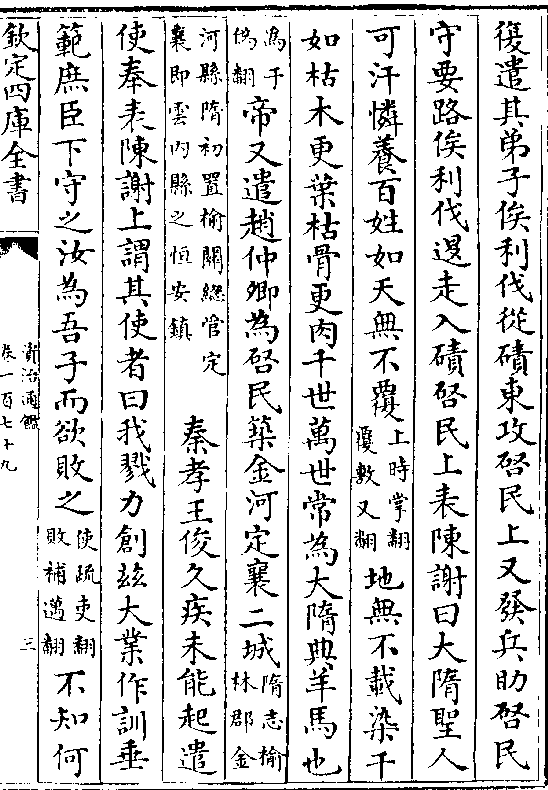 復遣其弟子俟利伐從磧東攻啓民上又發兵助啓民
守要路俟利伐退走入磧啓民上表陳謝曰大隋聖人
可汗憐養百姓如天無不覆上時掌翻覆敷又翻地無不載染干
如枯木更葉枯骨更肉千世萬世常為大隋典羊馬也
為于偽翻帝又遣趙仲卿為啓民築金河定襄二城隋志榆林郡金
河縣隋初置榆關總管定襄即雲内縣之恒安鎮秦孝王俊久疾未能起遣
使奉表陳謝上謂其使者曰我戮力創兹大業作訓垂
範庶臣下守之汝為吾子而欲敗之使疏吏翻敗補邁翻不知何
欽定四庫全書
資治通鑑
卷一百七十九
三